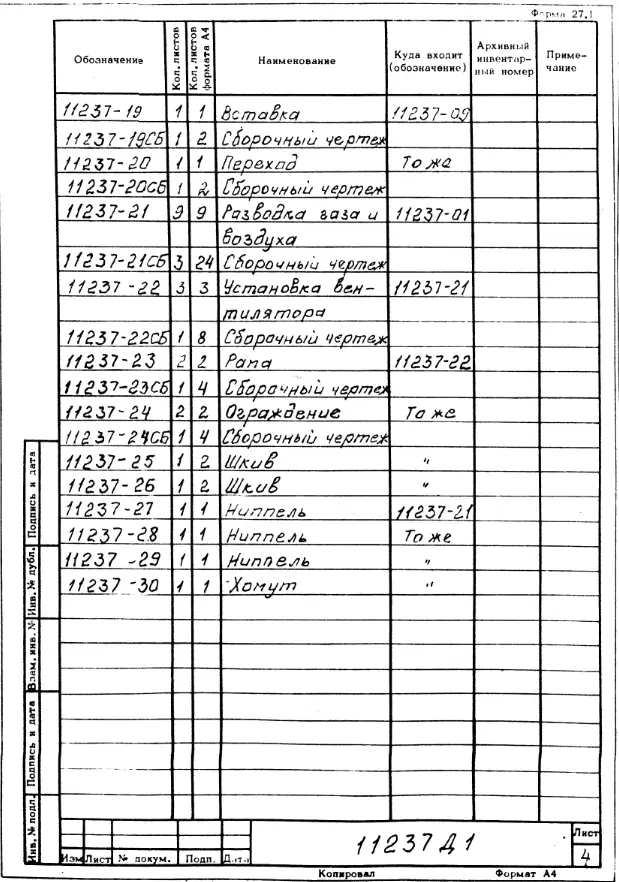 Форма 27.1
Обозначение Кол. листов Кол. листов формата А4 Наименование Куда входит (обозначение) Архивный инвентарный номер Примечание
11237-19 1 1 Вставка 11237-09
11237-19СБ 1 2 Сборочный чертеж
11237-20 1 1 Переход То же
11237-20СБ 1 2 Сборочный чертеж
11237-21 9 9 Разводка газа и 11237-01
воздуха
11237-21СБ 3 24 Сборочный чертеж
11237-22 3 3 Установка вен-
11237-21
тилятора
11237-22СБ 1 8 Сборочный чертеж
11237-23 2 2 Рапа 11237-22
11237-23СБ 1 4 Сборочный чертеж
11237-24 2 2 Ограждение То же
11237-24СБ 1 4 Сборочный чертеж
11237-25 1 2 Шкив "
11237-26 1 2 Шкив "
11237-27 1 1 Ниппель 11237-21
11237-28 1 1 Ниппель То же
11237-29 1 1 Ниппель "
11237-30 1 1 Хомут "
Подпись и дата
Инв. № дубл.
Взам. инв. №
Подпись и дата
Инв. № подл.
Изм Лист № докум. Подп. Дата
11237Д1
Лист
4
Копировал Формат А4